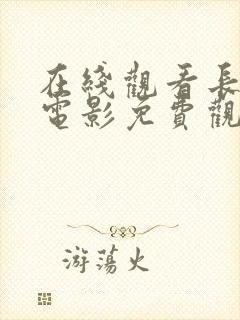 在綫觀看長
電影免費觀
游蕩火